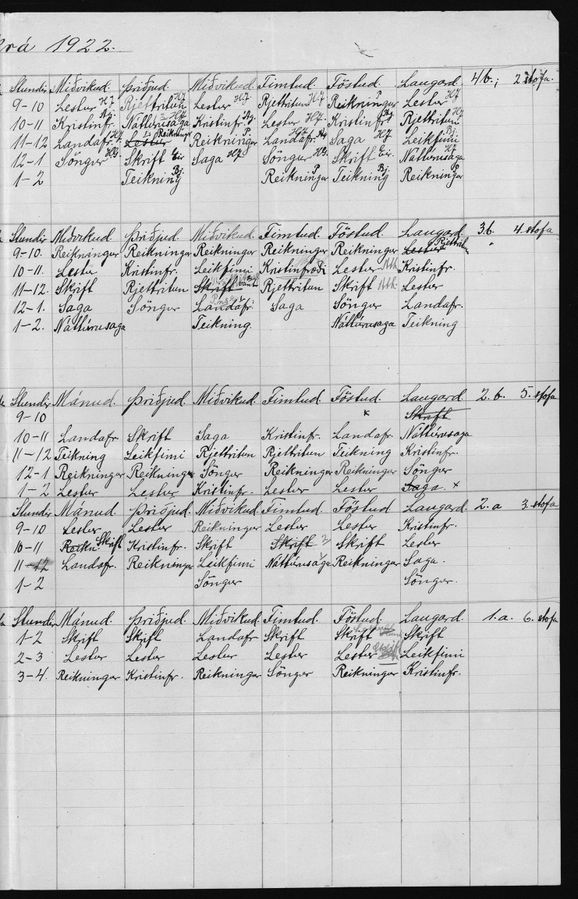 rá 1922.
Stundir Miðvikud. Þriðjud. Miðvikud. Fimtud. Föstud. Laugard. 4b.; 2 stofa.
9-10 Lestur HJ Rjettritun HJ Lestur HJ Rjettritun HJ Reikningur P Lestur HJ
10-11 Kristinfr. Náttúrusaga HJ Kristinfr. Lestur HJ Kristinfr. Rjettritun HJ
11-12 Landafr. HJ Lestur Reikningur Reikningur P. Landafr. Saga HJ Leikfimi Bj
12-1 Söngur Skrift Saga HJ Söngur Skrift Náttúrusaga HJ
1-2 Teikning Bj Reikningur P Teikning Bj Reikningur P
Stundir Miðvikud Þriðjud. Miðvikud. Fimtud. Föstud. Laugard 3b. 4. stofa
9-10. Reikningur Reikningur Reikningur Reikningur Reikningur Lestur Rjettrit.
10-11. Lestur Kristinfr. Leikfimi Kristinfræði Lestur Kristinfr.
11-12. Skrift Rjettritun Skrift Rjettritun Skrift Lestur
12-1. Saga Söngur Landafr. Saga Söngur Landafr.
1-2. Náttúrusaga Teikning Náttúrusaga Teikning
Stundir Mánud. Þriðjud. Miðvikud. Fimtud. Föstud. Laugard 2. b. 5. stofa
9-10 x Skrift
10-11 Landafr Skrift Saga Kristinfr. Landafr. Náttúrusaga
11-12 Teikning Leikfimi Rjettritun Rjettritun Teikning Kristinfr.
12-1 Reikningur Reikningur Söngur Reikningur Reikningur Söngur
1-2 Lestur Lestur Kristinfr. Lestur Lestur Saga x
Stundir Mánud Þriðjud. Miðvikud. Fimtud. Föstud Laugard. 2. a 3. stofa
9-10 Lestur Lestur Reikningur Lestur Lestur Kristinfr.
10-11 Reikn Skrift Kristinfr. Skrift Skrift Skrift Lestur
11-12 Landafr. Reikningur Leikfimi Náttúrusaga Reikningur Saga.
1-2 Söngur Söngur.
Stundir Mánud. Þriðjud. Miðvikud. Fimtud. Föstud Laugard. 1. a. 6. stofa
1-2 Skrift Skrift Landafr Skrift Skrift Skrift
2-3 Lestur Lestur Lestur Lestur Lestur Leikfimi
3-4. Reikningur Kristinfr. Reikningur Söngur Reikningur Kristinfr.